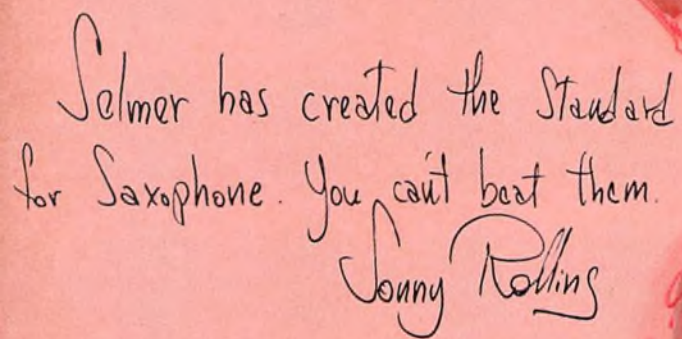 Selmer has created the Standard
for Saxophone. You can't beat them.
Sonny Rollins